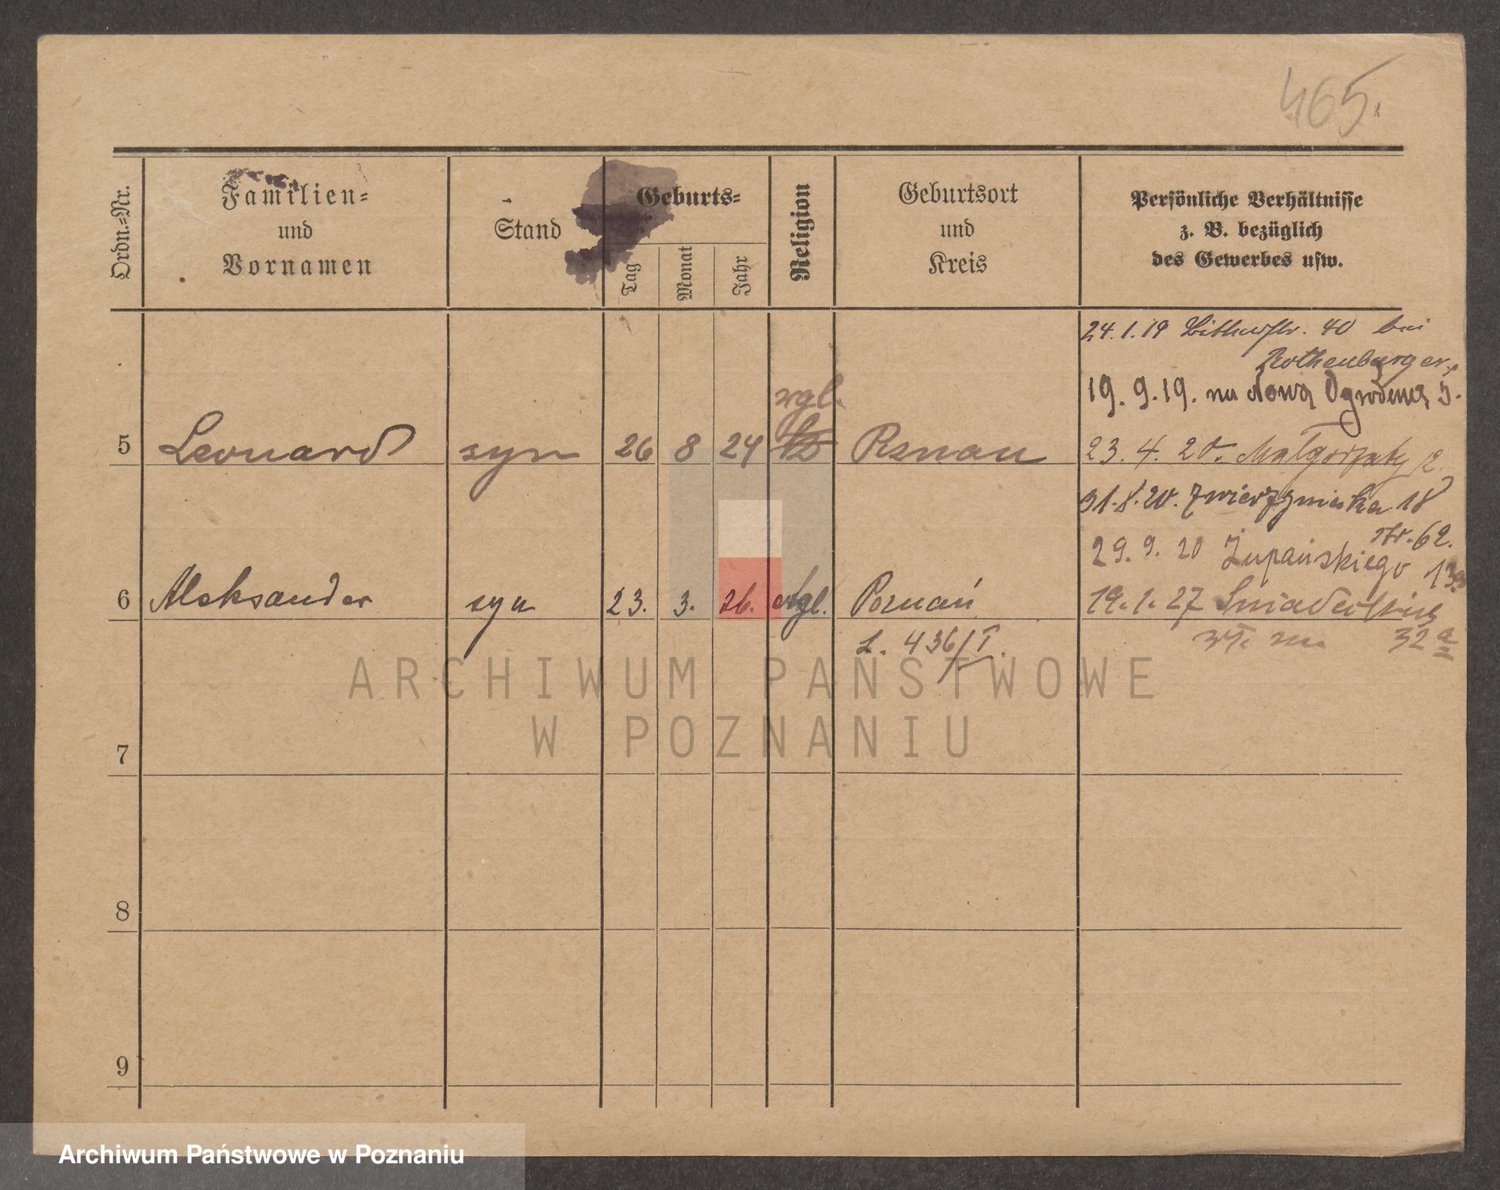 465.
Ordn.=Nr.
Familien=
und
Vornamen
Stand
Geburts=
Tag
Monat
Jahr
Religion
Geburtsort
und
Kreis
Persönliche Verhältnisse
z. B. bezüglich
des Gewerbes usw.
24.1.19 40 bei
Rothenburger,
19.9.19. na Nowa Ogrodowa
5 Leonard syn 26 8 24
23.4.20.
31.8.20. Zwierzyniecka 18
str. 62.
29.9.20 Żupańskiego
6 Aleksander syn 23. 3. 26. Poznań
19.1.27 Śniadeckich
L. 436/I.
32 a
ARCHIWUM PAŃSTWOWE
W POZNANIU
7
8
9
Archiwum Państwowe w Poznaniu